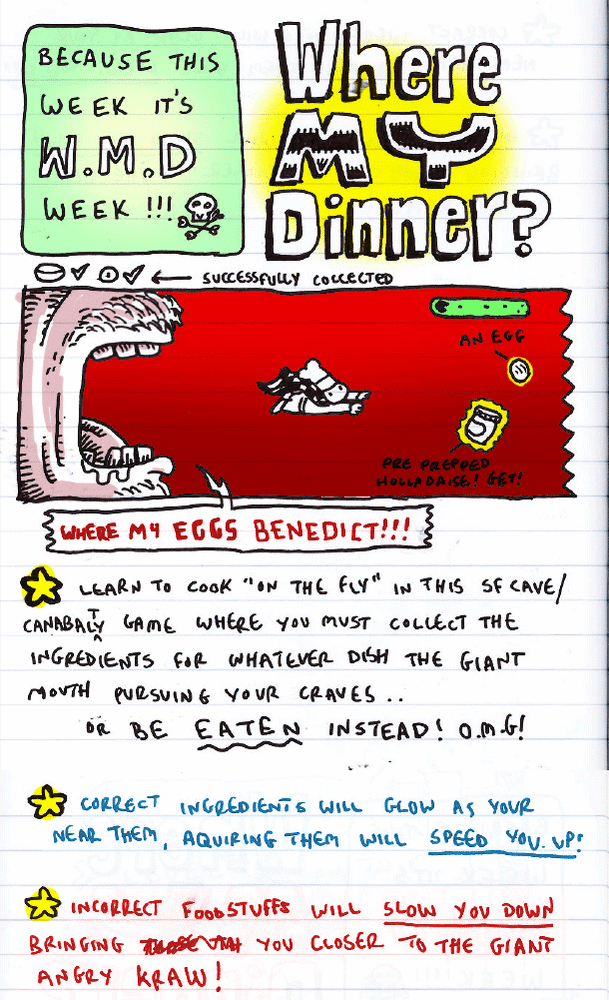 BECAUSE THIS
WEEK IT'S
W.M.D
WEEK !!!
Where
MY
Dinner?
SUCCESSFULLY COLLECTED
AN EGG
PRE PREPPED
HOLLADAISE! GET!
WHERE MY EGGS BENEDICT!!!
LEARN TO COOK "ON THE FLY" IN THIS SFCAVE/
CANABALTY GAME WHERE YOU MUST COLLECT THE
INGREDIENTS FOR WHATEVER DISH THE GIANT
MOUTH PURSUING YOUR CRAVES..
OR BE EATEN INSTEAD! O.M.G!
CORRECT INGREDIENTS WILL GLOW AS YOUR
NEAR THEM, AQUIRING THEM WILL SPEED YOU UP!
INCORRECT FOODSTUFFS WILL SLOW YOU DOWN
BRINGING YOU CLOSER TO THE GIANT
ANGRY KRAW!